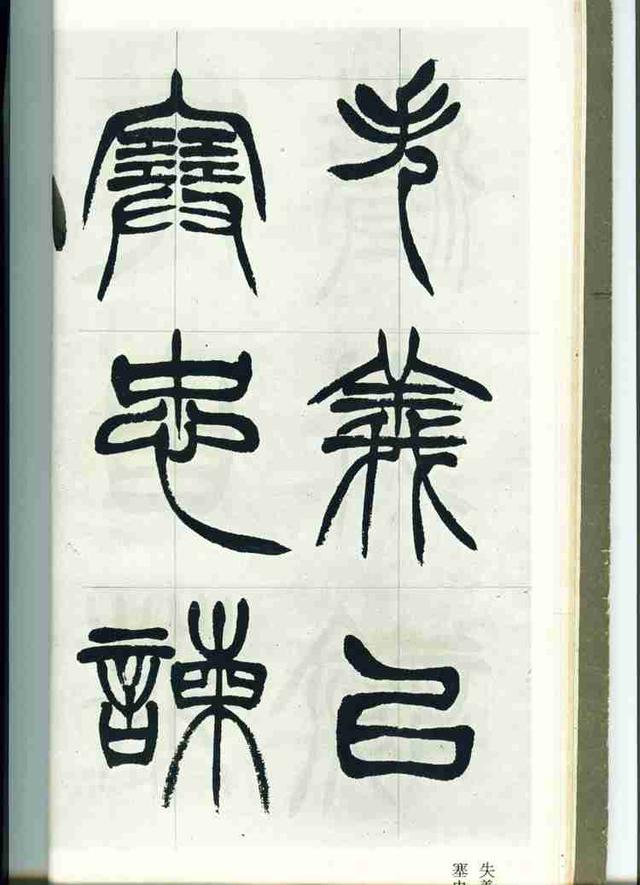 失義以
塞忠諫
失義
塞忠